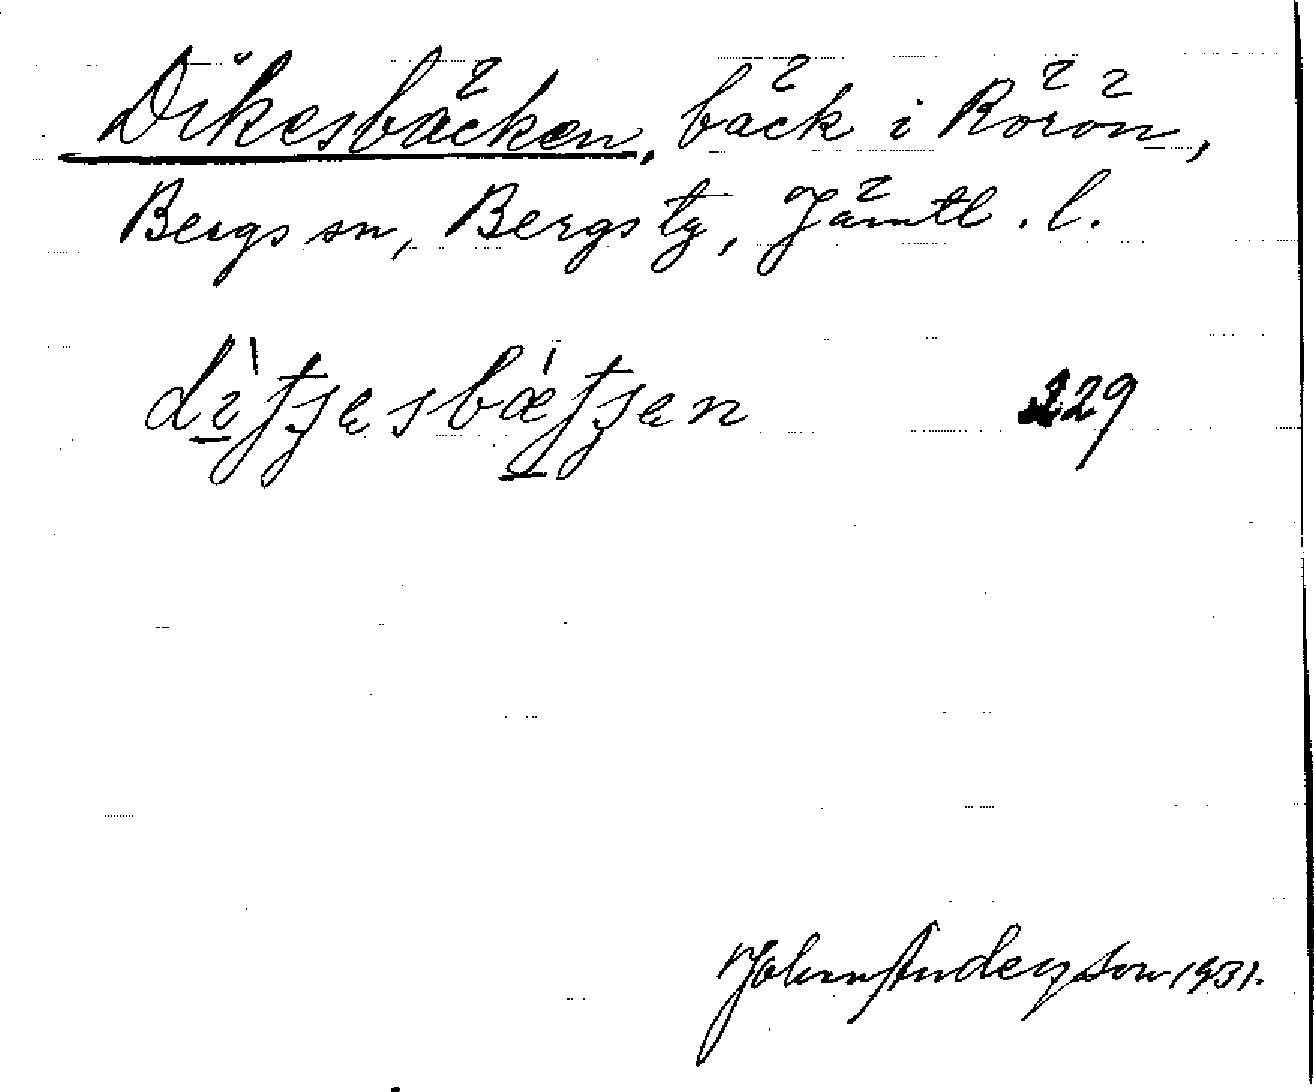 Dikesbäcken, bäck i Rörön,
Bergs sn, Bergs tg, Jämtl. l.
229
John Anderson 1931.